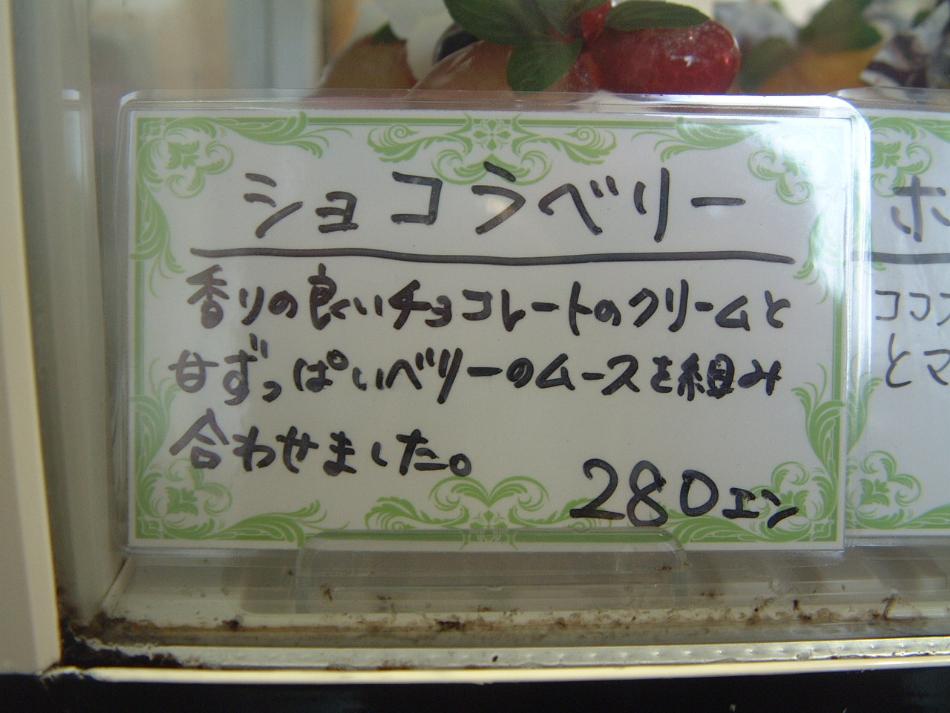 ショコラベリー
香りの良いチョコレートのクリームと
甘ずっぱいベリーのムースを組み
合わせました。
280エン
ホ
ココン
とマ